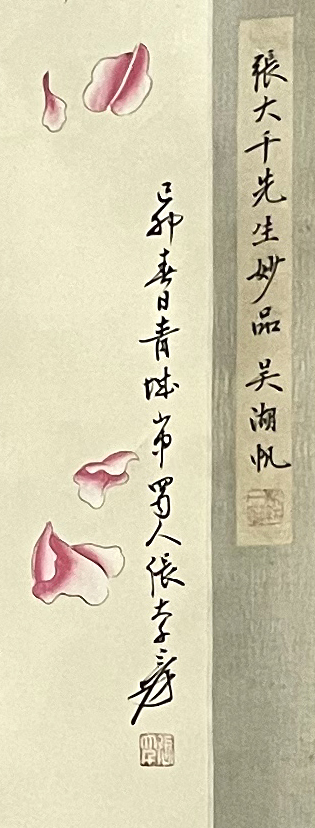 張大千先生妙品 吴湖帆
己卯春日青城山蜀人張大千爰